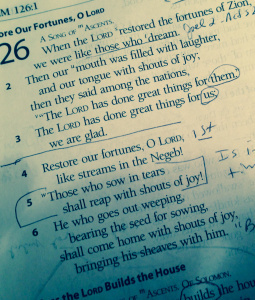 M 126:1
ore Our Fortunes, O LORD
A SONG OF ASCENTS.
26 When the LORD restored the fortunes of Zion,
we were like those who dream. Joel 2 - Acts 2
2 Then our mouth was filled with laughter,
and our tongue with shouts of joy;
then they said among the nations,
"The LORD has done great things for them."
3 The LORD has done great things for us;
we are glad.
4 Restore our fortunes, O LORD, 1st
like streams in the Negeb!
5 Those who sow in tears
shall reap with shouts of joy!
6 He who goes out weeping,
bearing the seed for sowing,
shall come home with shouts of joy,
bringing his sheaves with him.
the LORD Builds the House
ASCENTS. OF SOLOMON.
builds the hou